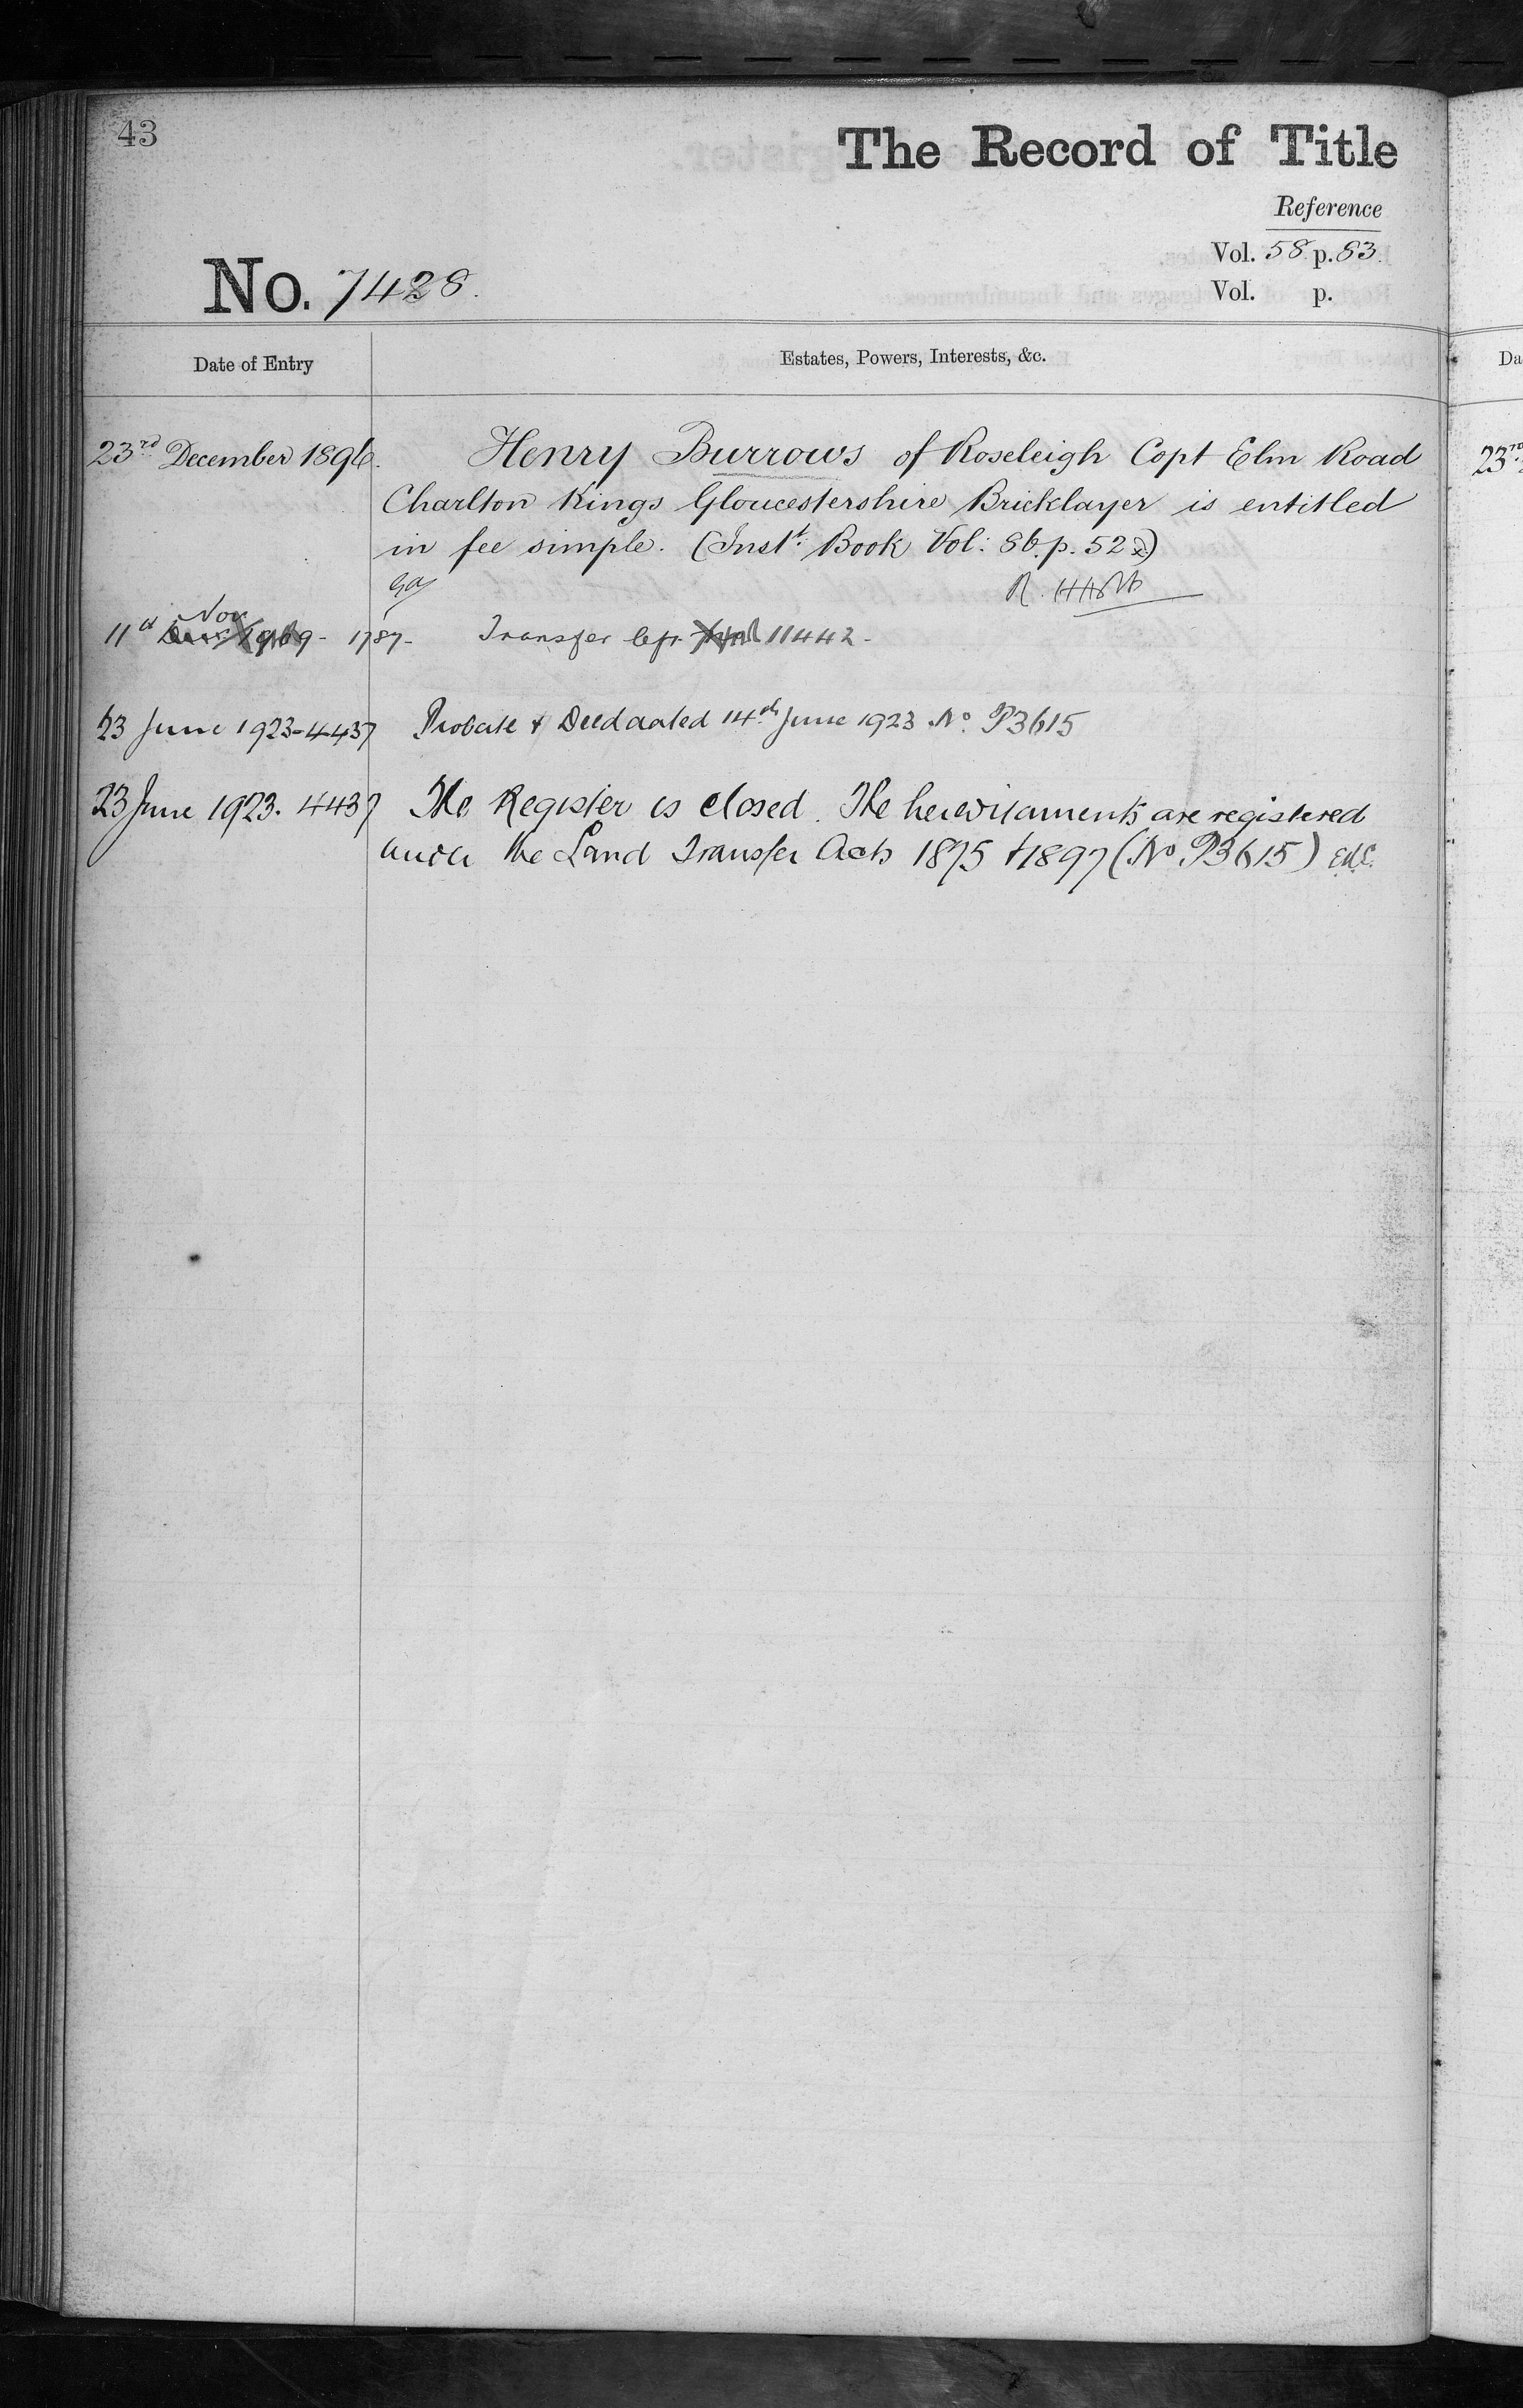 43
The Record of Title
Reference
Vol. 58 p. 83.
No. 7428.
Vol. p.
Date of Entry
Estates, Powers, Interests, &c.
Da
23rd December 1896.
Henry Burrows of Roseleigh Copt Elm Road
23rd
Charlton Kings Gloucestershire Bricklayer is entitled
in fee simple. (Instt. Book Vol: 86. p. 52)
Nov
11th 1909 - 1787 - Transfer 11442 -
23 June 1923 - 4437 Probate & Deed dated 14th June 1923 No. P3615
23 June 1923. 4437 The Register is closed. The hereditaments are registered
under the Land Transfer Acts 1875 & 1897 (No P3615)